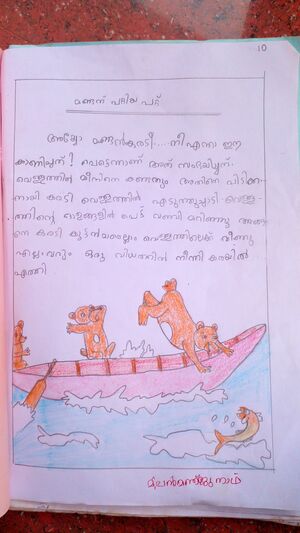 10
മണ്ടന് പറ്റിയ പറ്റ്
അയ്യോ മണ്ടൻകരടീ....നീ എന്താ ഈ
കാണിച്ചന്! പെട്ടെന്നാണ് അത് സംഭവിച്ചന്.
വെള്ളത്തിൽ മീനിനെ കണ്ടതും അതിനെ പിടിക്ക-
നായി കരടി വെള്ളത്തിൽ എടുത്തുചാടി വെള്ള-
ത്തിന്റെ ഓളങ്ങളിൽ പെട്ട് വഞ്ചി മറിഞ്ഞു അങ്ങ
നെ കരടി കൂട്ടൻമാരെല്ലാം വെള്ളത്തിലേക്ക് വീണു
എല്ലാവരും ഒരു വിധത്തിൽ നീന്തി കരയിൽ
എത്തി.